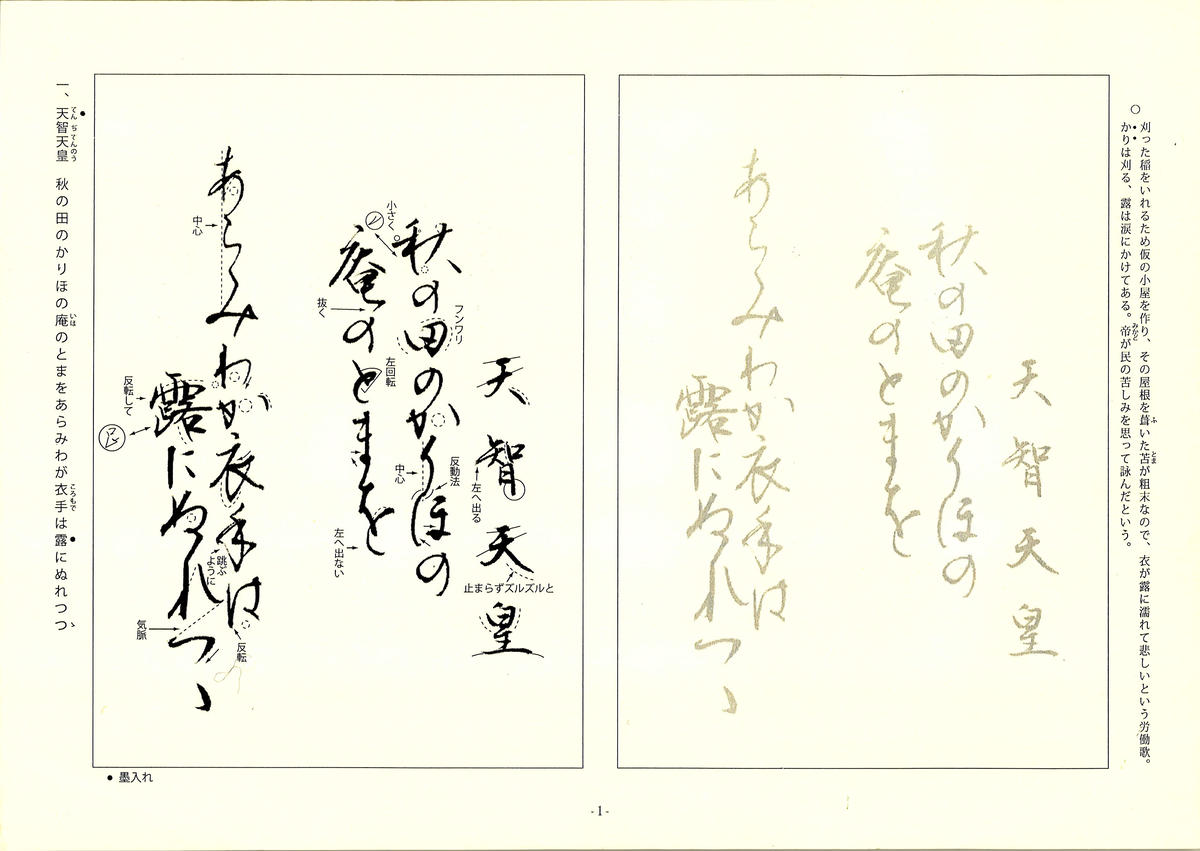 ○ 刈った稲をいれるため仮の小屋を作り、その屋根を葺いた苫が粗末なので、衣が露に濡れて悲しいという労働歌。
かりは刈る、露は涙にかけてある。帝が民の苦しみを思って詠んだという。
ふ
とま
みかど
天智天皇
秋の田のかりほの
庵のとまを
あらみ
わか衣手は
露にぬれつゝ
天智天皇
秋の田のかりほの
庵のとまを
あらゝみ
わか衣手は
露にぬれつゝ
左へ出る
止まらずズルズルと
フンワリ
反動法
中心
小さく
抜く
左回転
左へ出ない
中心
跳ぶように
反転
反転して
気脈
一、天智天皇 秋の田のかりほの庵のとまをあらみわが衣手は露にぬれつゝ
てんぢてんのう
いほ
ころもで
● 墨入れ
-1-